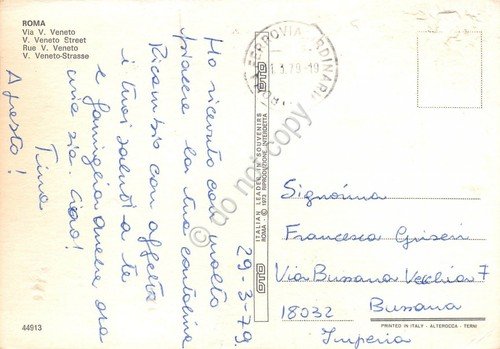 ROMA
Via V. Veneto
V. Veneto Street
Rue V. Veneto
V. Veneto-Strasse
29-3-79.
Ho ricevuto con molto
piacere la tua cartolina
Ricambio con affetto
i tuoi saluti a te
e famiglia anche da
mia zia. Ciao!
Tina
A presto!
FERROVIA ORDINARI
1.3.79-19
OTO
ITALIAN LEADER IN SOUVENIRS
ROMA - © 1973 RIPRODUZIONE INTERDETTA
OTO
© do not copy
Signorina
Francesca
Via Bussana Vecchia 7
18032 Bussana
Imperia
44913
PRINTED IN ITALY - ALTEROCCA - TERNI